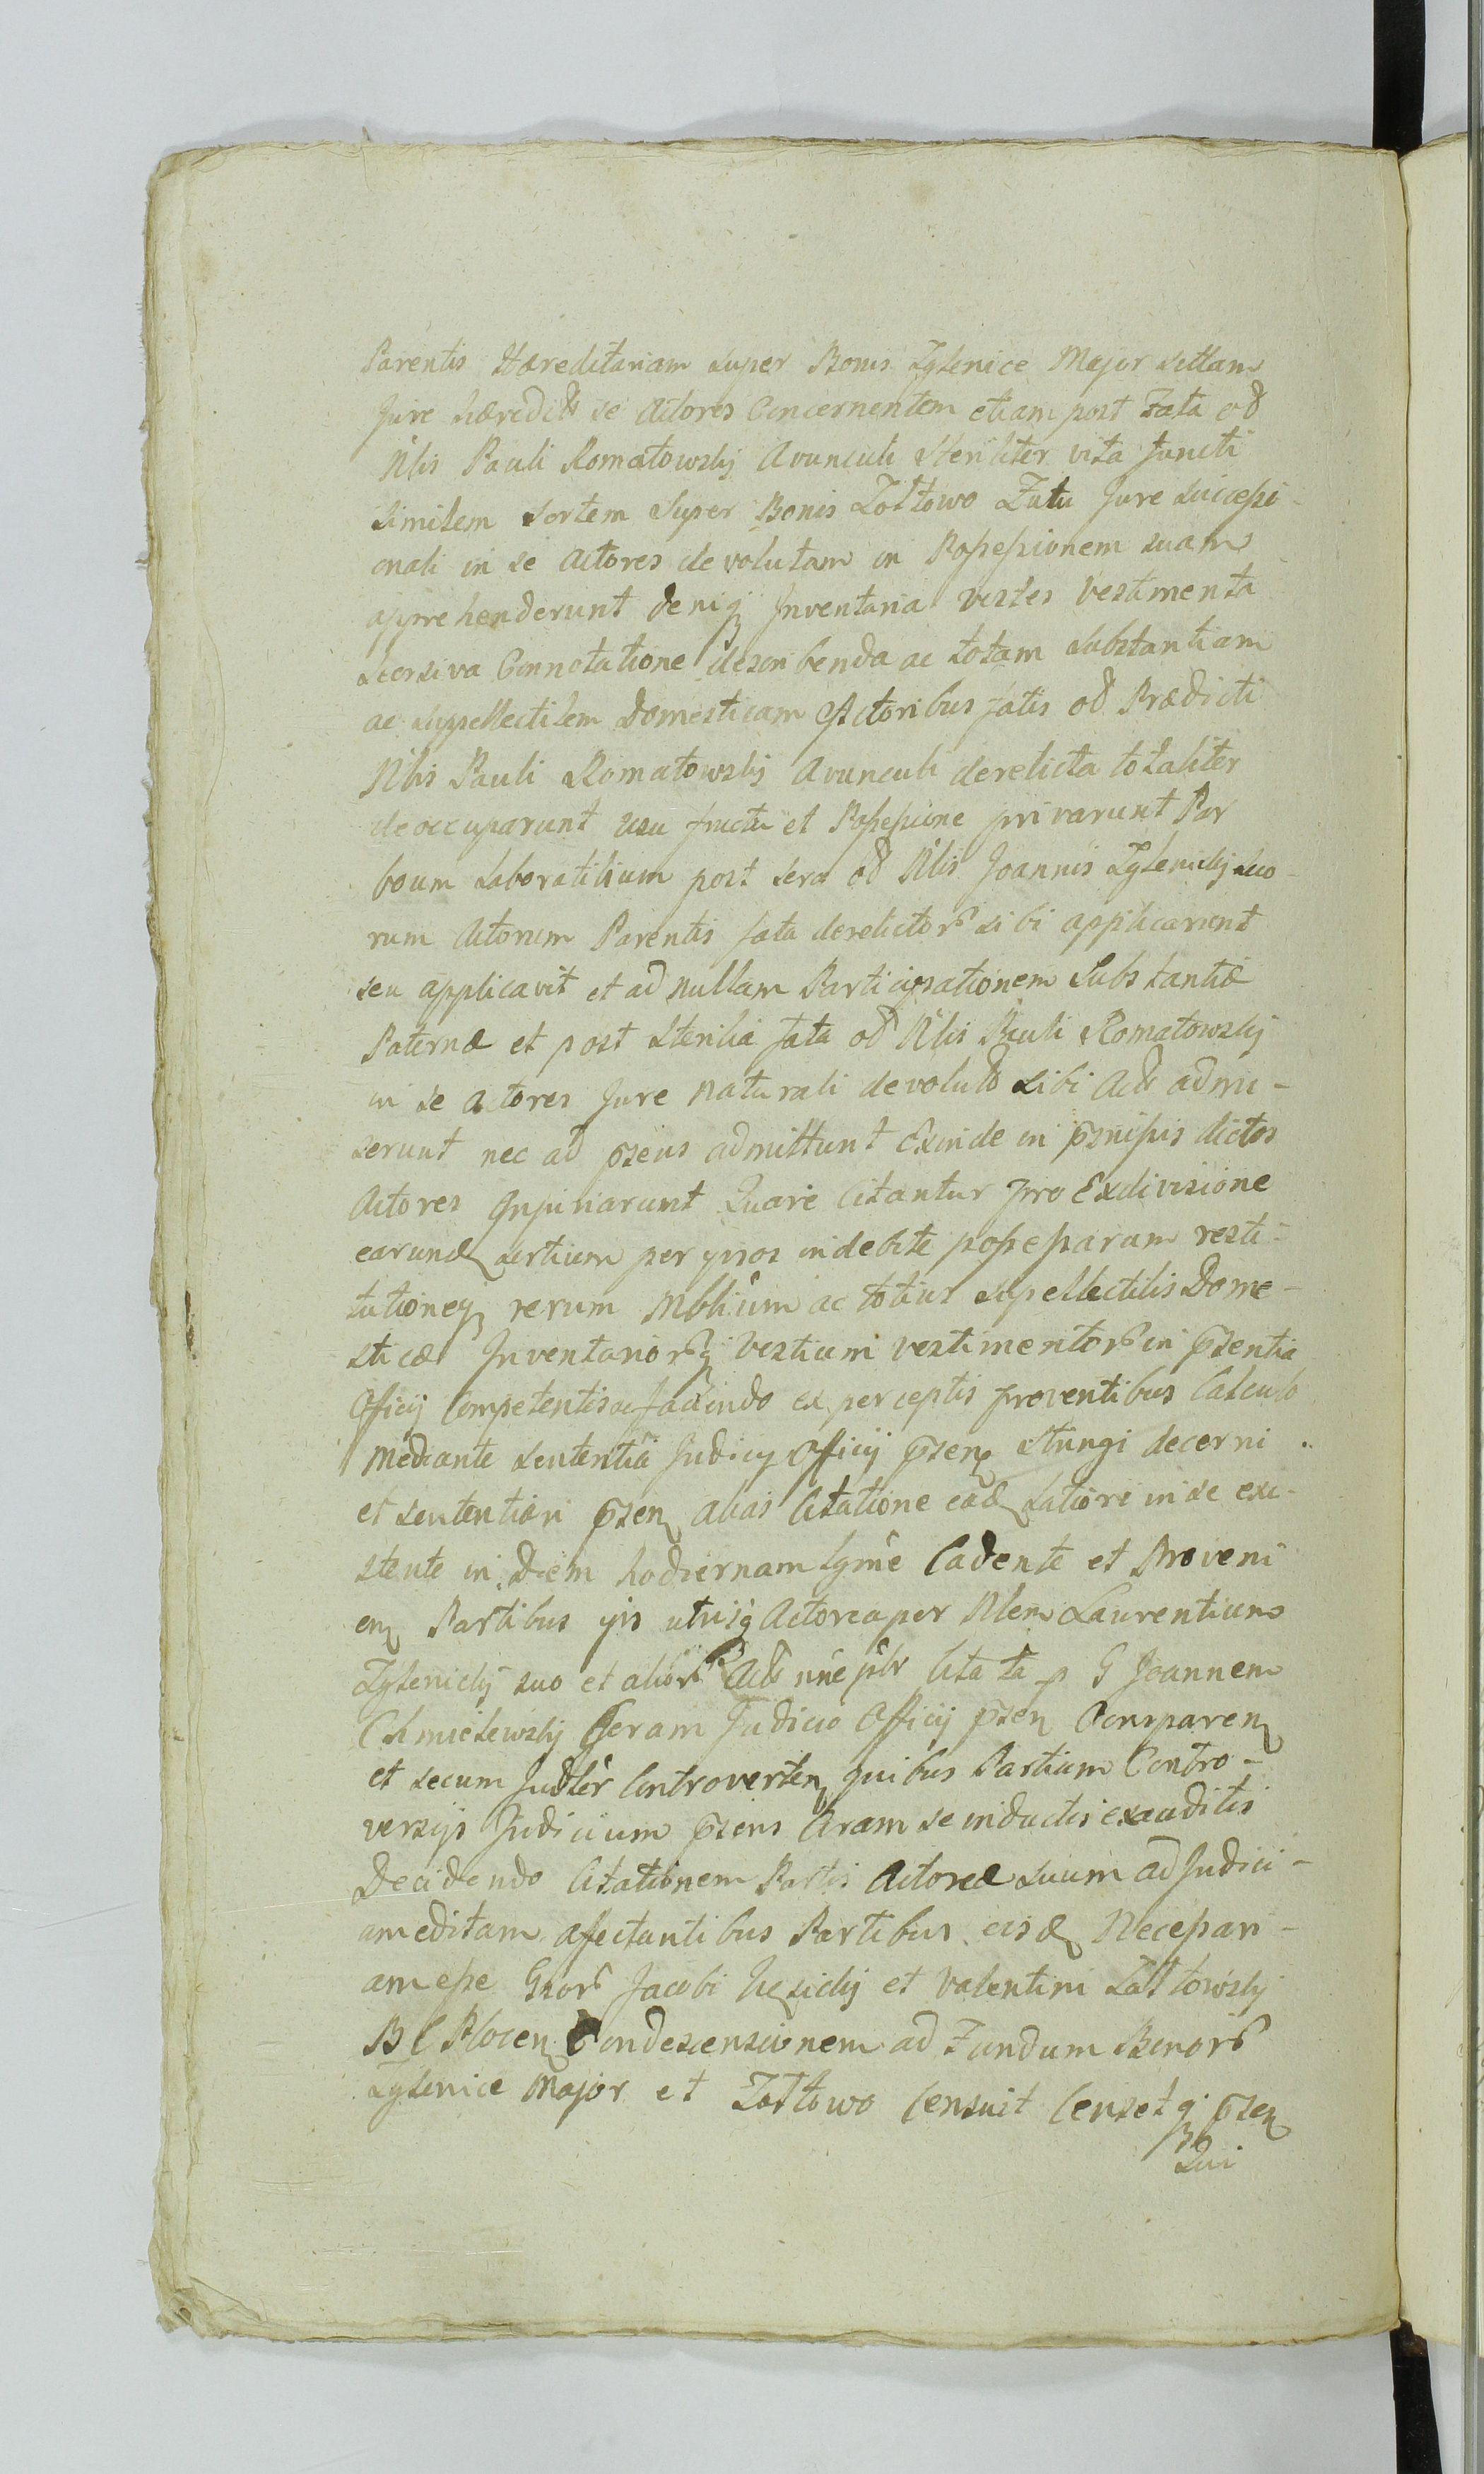 Parentis Hæreditariam super Bonis Zglenice Major sittam
Jure hæredit se Actores Concernentem etiam post Fata od
Nlis Pauli Romatowskij Avunculi Steriliter vita functi
similem sortem super Bonis Zołtowo Fatu Jure successi-
onali in se Actores devolutam in Possessionem suam
apprehenderunt deniq Inventaria vestes vestimenta
scorsiva Connotatione describenda ac totam substantiam
ac suppellectilem Domesticam Actoribus fatis od Prædicti
Nlis Pauli Romatowskij Avunculi derelicta totaliter
deoccuparunt usu fructu et Possessione privarunt Par
boum laboratilium post sera od Nlis Joannis Zglenickij suo-
rum Actorum Parentis fata derelictor sibi applicarunt
seu applicavit et ad nullam Participationem Substantiæ
Paternæ et post sterilia fata od Nlis Pauli Romatowskij
in se actores Jure naturali devolut sibi Act admi-
serunt nec ad psens admittunt Exinde in præmissis dictos
Actores Injuriarunt Quare Citantur pro Exdivisione
earund sortium per ipsos indebite possessarum resti-
tutioneq rerum Mblium ac totius supellectilis Dome-
sticæ Inventariorq vestium vestimentor in psentia
Officij Competentis ac faciendo ex perceptis proventibus Calculo
Mediante sententia Judicij Officij psen stringi decerni
et sententiari psen alias Citatione ead latiori in se exi-
stente in Diem hodiernam lgme Cadente et Proveni
en Partibus ijs utrisq Actorea per Nlem Laurentium
Zglenickij suo et alior Act nne psbr Citata p G Joannem
Chmielewskij Coram Judicio Officij psen Comparen
et secum Judtler Controverten quibus Partium Contro-
versijs Judicium psens Coram se inductis exauditis
Decidendo Citationem Partis Actoreæ suum ad Judici-
am editam affectantibus Partibus eisd Necessari-
am esse Gsor Jacobi et Valentini Zołtowskij
B C Plocen Condescensionem ad Fundum Bonor
Zglenice Major et Zołtowo Censuit Censetq psen
Qui